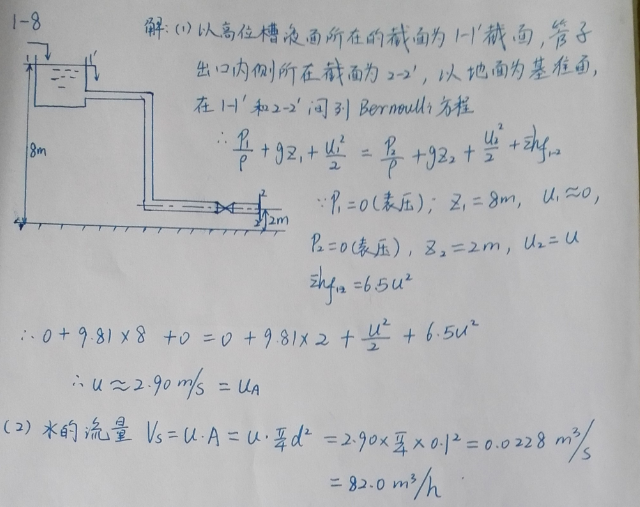 1-8
解：(1) 以高位槽液面所在的截面为1-1'截面，管子
出口内侧所在截面为2-2'，以地面为基准面，
在1-1'和2-2'间列Bernoulli方程
∴ P₁/ρ + gZ₁ + U₁²/2 = P₂/ρ + gZ₂ + U₂²/2 + Σhf₁₂
∵ P₁=0(表压)；Z₁=8m, U₁≈0,
P₂=0(表压), Z₂=2m, U₂=U
Σhf₁₂=6.5U²
1'
8m
2
2
2m
∴ 0+9.81×8 +0 = 0+9.81×2 + U²/2 + 6.5U²
∴ U≈2.90 m/s = U_A
(2) 水的流量 Vs=U·A=U·π/4 d² =2.90×π/4×0.1²=0.0228 m³/s
=82.0 m³/h